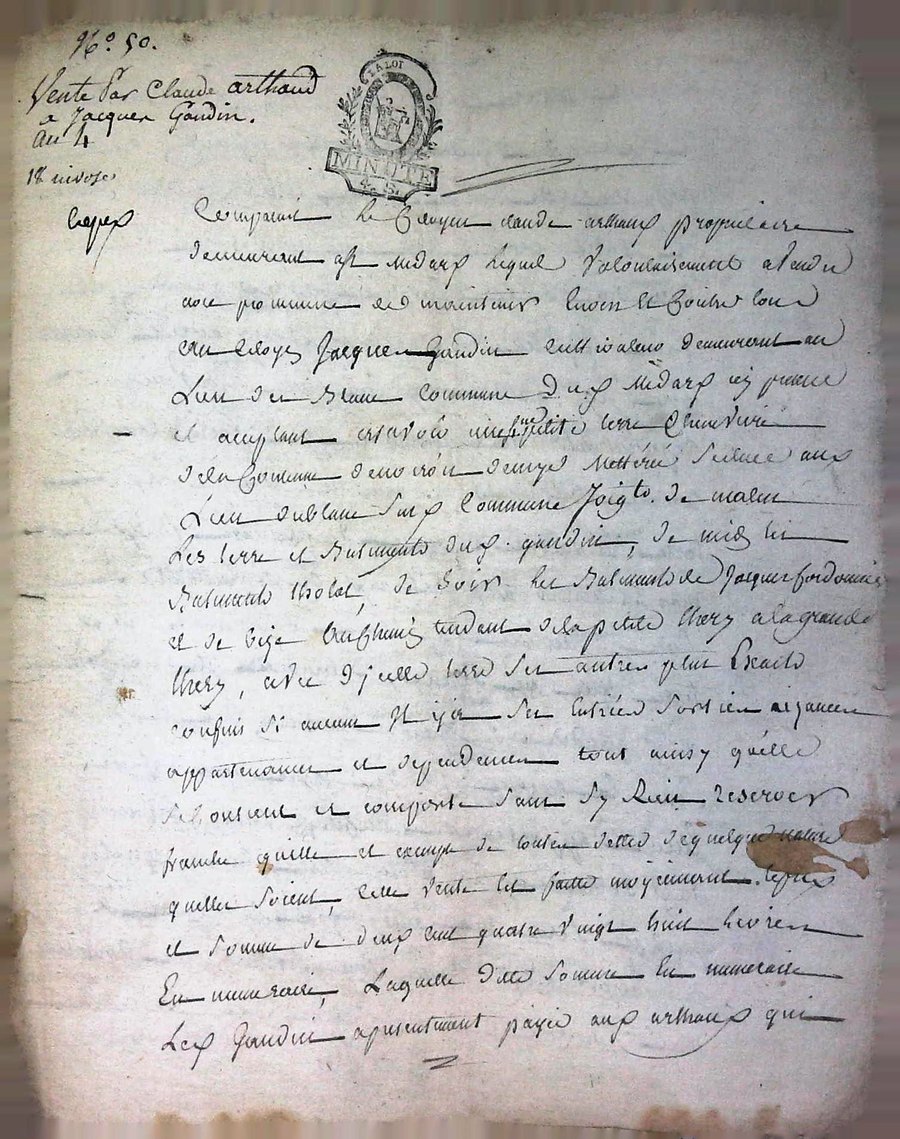 N.° 50.
Vente par Claude arthaud
a Jacques Gaudin.
an 4
18 nivose
LA LOI
MINUTE
4. S.
Comparait le Citoyen claude arthaud propriétaire
demeurant a st Medard lequel volontairement a vendu
avec promesse de maintenir Envers et Contre tous
au Citoyen Jacques Gaudin cultivateur demeurant au
Lieu du Blanc Commune dud. st Medard icy present
et acceptant assavoir une petite terre Cheneviere
de la Contenue denviron demye Metterée Scituée aux
Lieu dublanc sur Commune Joigt. de matin
Les terre et Batiments dud. gaudin, de midy les
Batiments tholot, de Soir les Batiments de Jacques
et de bize le Chemin tendant de la petite thery a la grande
thery, avec dicelle terre ses autres plus Exacts
confins si aucuns Il y a ses Entrées sorties aizances
appartenances et dependences tout ainsy quelle
se Contient et comporte sans s'y Rien reserver
franche quitte et exempte de toutes dettes de quelque nature
quelles soient, cette vente est faitte moyennant le prix
et somme de deux cent quatre vingt huit Livres
En numeraire, Laquelle ditte somme En numeraire
Led. Gaudin a presentement payée aud. arthaud qui